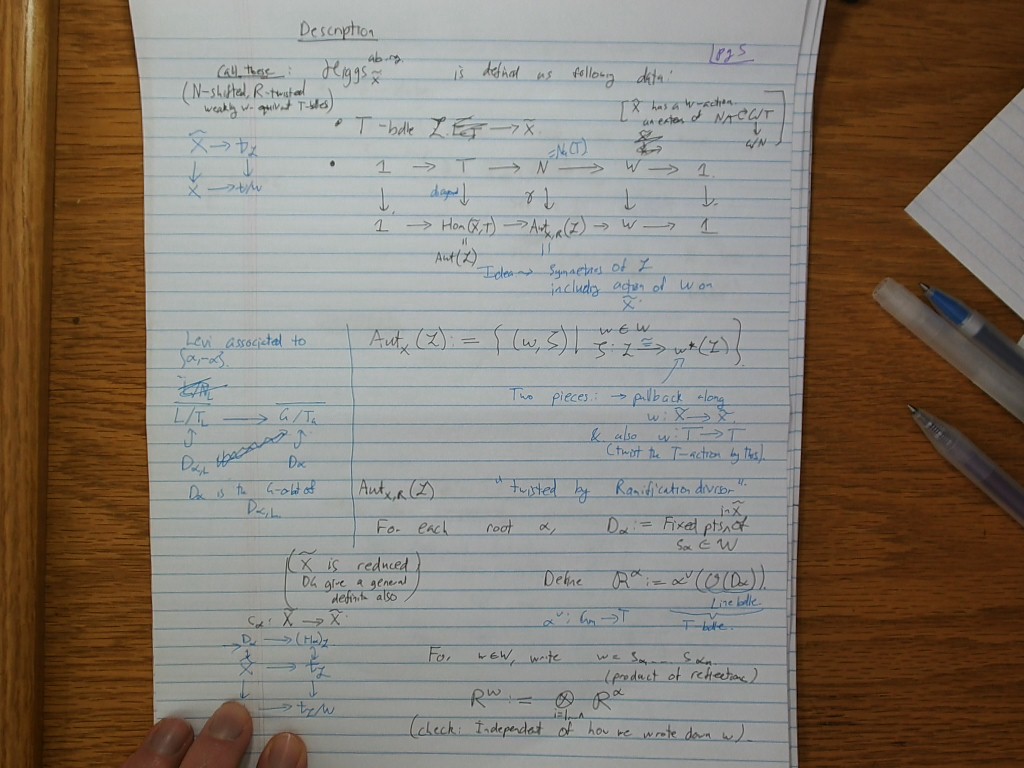 Description
pg 5
Call these:
(N-shifted, R-twisted
weakly W-equivariant T-bdles)
Higgs ab. reg. X̃ is defined as following data:
[X̃ has a W-action
N/T
W/N]
• T-bdle ℒ → X̃
X̃ → t_ℒ
↓ ↓
X → t/W
=N_G(T)
• 1 → T → N → W → 1
↓ ↓ γ ↓ ↓ ↓
1 → Hom(X̃,T) → Aut_{X,R}(ℒ) → W → 1
Aut(ℒ)
Idea → Symmetries of ℒ
including action of W on
X̃
Levi associated to
{α,-α}.
L/T_L → G/T_G
D_{α,L} D_α
D_α is the G-orbit of
D_{α,L}
Aut_X(ℒ) := { (w, ζ) | w ∈ W
ζ: ℒ ≅⇒ w*(ℒ) }
Two pieces: → pullback along
w: X̃ → X̃
& also w: T → T
(twist the T-action by this).
Aut_{X,R}(ℒ) "twisted by Ramification divisor".
in X̃
For each root α, D_α := Fixed pts of
s_α ∈ W
(X̃ is reduced
DG give a general
definition also)
Define R^α := α^∨(O(D_α))
Line bdle
T-bdle.
α^∨: G_m → T
s_α: X̃ → X̃
D_α → (H_α)_ℒ
↓ ↓
X̃ → t_ℒ
↓ ↓
→ t_ℒ/W
For w∈W, write w = s_{α_1} ... s_{α_n}
(product of reflections)
R^w := ⊗_{i=1,...,n} R^α
(check: Independent of how we wrote down w).